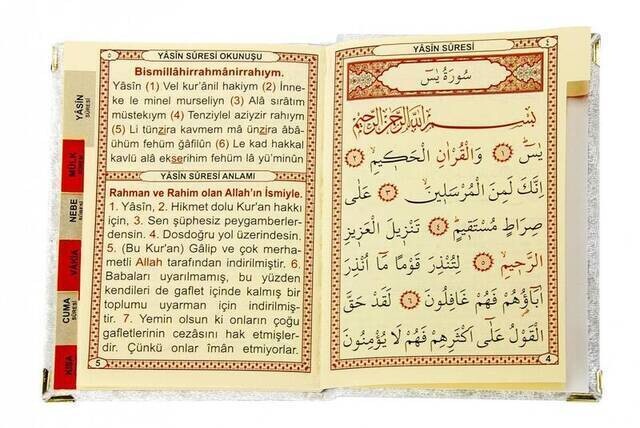 ٤
YÂSİN SÛRESİ
سُورَةُ يٰسٓ
بِسْمِ اللّٰهِ الرَّحْمٰنِ الرَّحِيمِ
يٰسٓ ﴿١﴾ وَالْقُرْاٰنِ الْحَكِيمِ ﴿٢﴾
اِنَّكَ لَمِنَ الْمُرْسَلِينَ ﴿٣﴾ عَلٰى
صِرَاطٍ مُسْتَقِيمٍ ﴿٤﴾ تَنْزِيلَ الْعَزِيزِ
الرَّحِيمِ ﴿٥﴾ لِتُنْذِرَ قَوْمًا مَٓا اُنْذِرَ
اٰبَٓاؤُهُمْ فَهُمْ غَافِلُونَ ﴿٦﴾ لَقَدْ حَقَّ
الْقَوْلُ عَلٰٓى اَكْثَرِهِمْ فَهُمْ لَا يُؤْمِنُونَ
4
٥
YÂSİN SÛRESİ OKUNUŞU
Bismillâhirrahmânirrahıym.
Yâsîn (1) Vel kur'ânil hakiym (2) İnne-
ke le minel murseliyn (3) Alâ sırâtım
müstekıym (4) Tenziylel aziyzir rahıym
(5) Li tünzira kavmem mâ ünzira âbâ-
ühüm fehüm ğâfilûn (6) Le kad hakkal
kavlü alâ ekserihim fehüm lâ yü'minûn
YÂSİN SÛRESİ ANLAMI
Rahman ve Rahim olan Allah'ın İsmiyle.
1. Yâsîn, 2. Hikmet dolu Kur'an hakkı
için, 3. Sen şüphesiz peygamberler-
densin. 4. Dosdoğru yol üzerindesin.
5. (Bu Kur'an) Gâlip ve çok merha-
metli Allah tarafından indirilmiştir. 6.
Babaları uyarılmamış, bu yüzden
kendileri de gaflet içinde kalmış bir
toplumu uyarman için indirilmiş-
tir. 7. Yemin olsun ki onların çoğu
gafletlerinin cezâsını hak etmişler-
dir. Çünkü onlar îmân etmiyorlar.
5
YÂSİN
SÛRESİ
MÜLK
SÛRESİ
NEBE
SÛRESİ
VÂKIA
CUMA
SÛRESİ
KISA